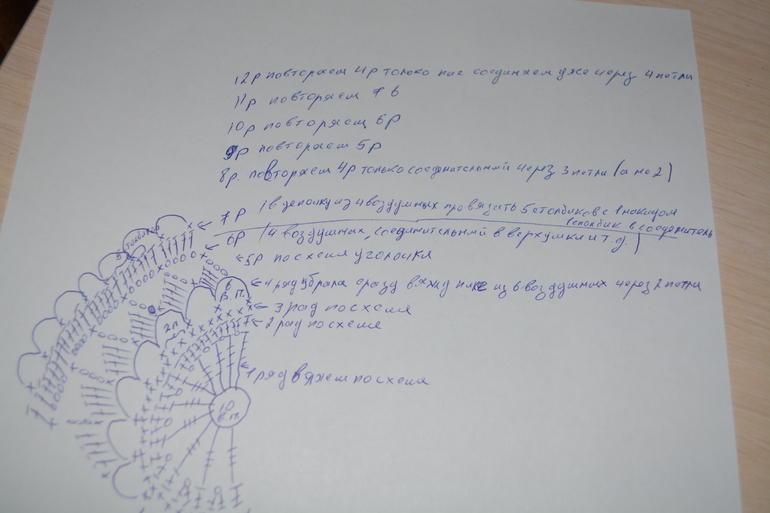 12р повторяем 4р только пико соединяем уже через 4 петли
11р повторяем 7 в
10р повторяем 6р
9р повторяем 5р
8р. повторяем 4р только соединительный через 3 петли (а не 2)
7р (в цепочку из 4 воздушных провязать 5 столбиков с 1 накидом
1 столбик в соединитель
6р (4 воздушных, соединительный в верхушки и т.д.)
5р по схеме уголочки
4 ряд убрала сразу вяжу пико из 6 воздушных через 2 петли
3 ряд по схеме
2 ряд по схеме
1 ряд вяжем по схеме
6
в.п.
2п
10
в.п.